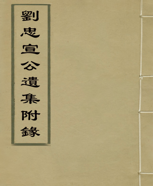 劉忠宣公遺集附錄